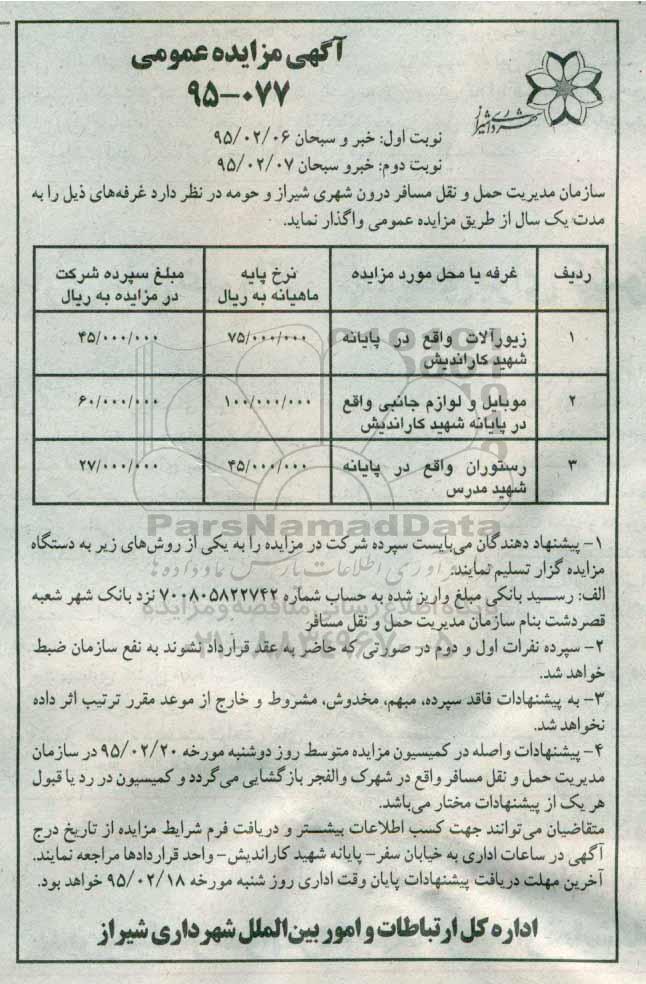 آگهی مزایده عمومی
۹۵-۰۷۷
شهرداری شیراز
نوبت اول: خبر و سبحان ۹۵/۰۲/۰۶
نوبت دوم: خبرو سبحان ۹۵/۰۲/۰۷
سازمان مدیریت حمل و نقل مسافر درون شهری شیراز و حومه در نظر دارد غرفه‌های ذیل را به
مدت یک سال از طریق مزایده عمومی واگذار نماید.
ردیف غرفه یا محل مورد مزایده نرخ پایه ماهیانه به ریال مبلغ سپرده شرکت در مزایده به ریال
۱ زیورآلات واقع در پایانه شهید کاراندیش ۷۵/۰۰۰/۰۰۰ ۴۵/۰۰۰/۰۰۰
۲ موبایل و لوازم جانبی واقع در پایانه شهید کاراندیش ۱۰۰/۰۰۰/۰۰۰ ۶۰/۰۰۰/۰۰۰
۳ رستوران واقع در پایانه شهید مدرس ۴۵/۰۰۰/۰۰۰ ۲۷/۰۰۰/۰۰۰
ParsNamadData
۱- پیشنهاد دهندگان می‌بایست سپرده شرکت در مزایده را به یکی از روش‌های زیر به دستگاه
مزایده گزار تسلیم نمایند:
الف: رسید بانکی مبلغ واریز شده به حساب شماره ۷۰۰۸۰۵۸۲۲۷۴۲ نزد بانک شهر شعبه
قصردشت بنام سازمان مدیریت حمل و نقل مسافر
۲- سپرده نفرات اول و دوم در صورتی که حاضر به عقد قرارداد نشوند به نفع سازمان ضبط
خواهد شد.
۳- به پیشنهادات فاقد سپرده، مبهم، مخدوش، مشروط و خارج از موعد مقرر ترتیب اثر داده
نخواهد شد.
۴- پیشنهادات واصله در کمیسیون مزایده متوسط روز دوشنبه مورخه ۹۵/۰۲/۲۰ در سازمان
مدیریت حمل و نقل مسافر واقع در شهرک والفجر بازگشایی می‌گردد و کمیسیون در رد یا قبول
هر یک از پیشنهادات مختار می‌باشد.
متقاضیان می‌توانند جهت کسب اطلاعات بیشتر و دریافت فرم شرایط مزایده از تاریخ درج
آگهی در ساعات اداری به خیابان سفر- پایانه شهید کاراندیش- واحد قراردادها مراجعه نمایند.
آخرین مهلت دریافت پیشنهادات پایان وقت اداری روز شنبه مورخه ۹۵/۰۲/۱۸ خواهد بود.
اداره کل ارتباطات و امور بین‌الملل شهرداری شیراز